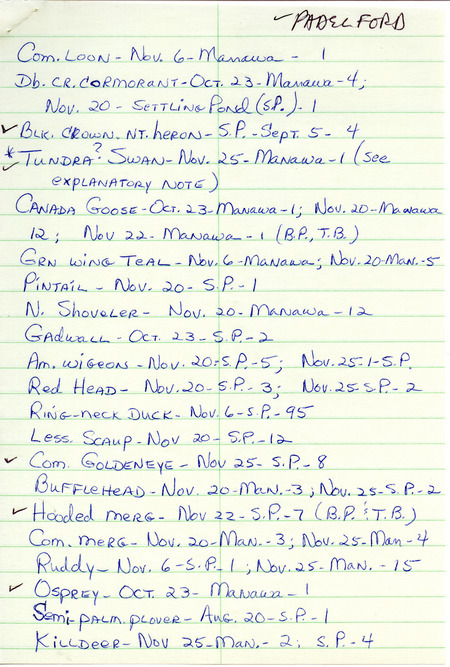 ✓ PADELFORD
Com. LOON - Nov. 6 - Manawa - 1
Db. CR. CORMORANT - OCT. 23 - Manawa - 4;
Nov. 20 - SETTLING POND (S.P.) - 1
✓ BLK. CROWN. NT. HERON - S.P. - SEPT. 5 - 4
* ✓ TUNDRA? SWAN - Nov. 25 - Manawa - 1 (See
EXPLANATORY NOTE)
CANADA GOOSE - OCT. 23 - Manawa - 1; Nov. 20 - Manawa
12; Nov 22 - Manawa - 1 (B.P., T.B.)
GRN WING TEAL - Nov. 6 - Manawa; Nov. 20 - Man. - 5
PINTAIL - Nov. 20 - S.P. - 1
N. SHOVELER - Nov. 20 - Manawa - 12
GADWALL - OCT. 23 - S.P. - 2
Am. WIGEONS - Nov. 20 - S.P. - 5; Nov. 25 - 1 - S.P.
Red HEAD - Nov. 20 - S.P. - 3; Nov. 25 - S.P. - 2
RING-NECK DUCK - Nov. 6 - S.P. - 95
LESS. SCAUP - Nov 20 - S.P. - 12
✓ COM. GOLDENEYE - Nov 25 - S.P. - 8
BUFFLEHEAD - Nov. 20 - Man. - 3; Nov. 25 - S.P. - 2
✓ HOODED MERG - Nov 22 - S.P. - 7 (B.P. & T.B.)
Com. MERG - Nov. 20 - Man. - 3; Nov. 25 - Man - 4
RUDDY - Nov. 6 - S.P. - 1; Nov. 25 - Man. - 15
✓ OSPREY - OCT. 23 - Manawa - 1
Semi-palm. plover - Aug. 20 - S.P. - 1
KILLDEER - Nov 25 - Man. - 2; S.P. - 4